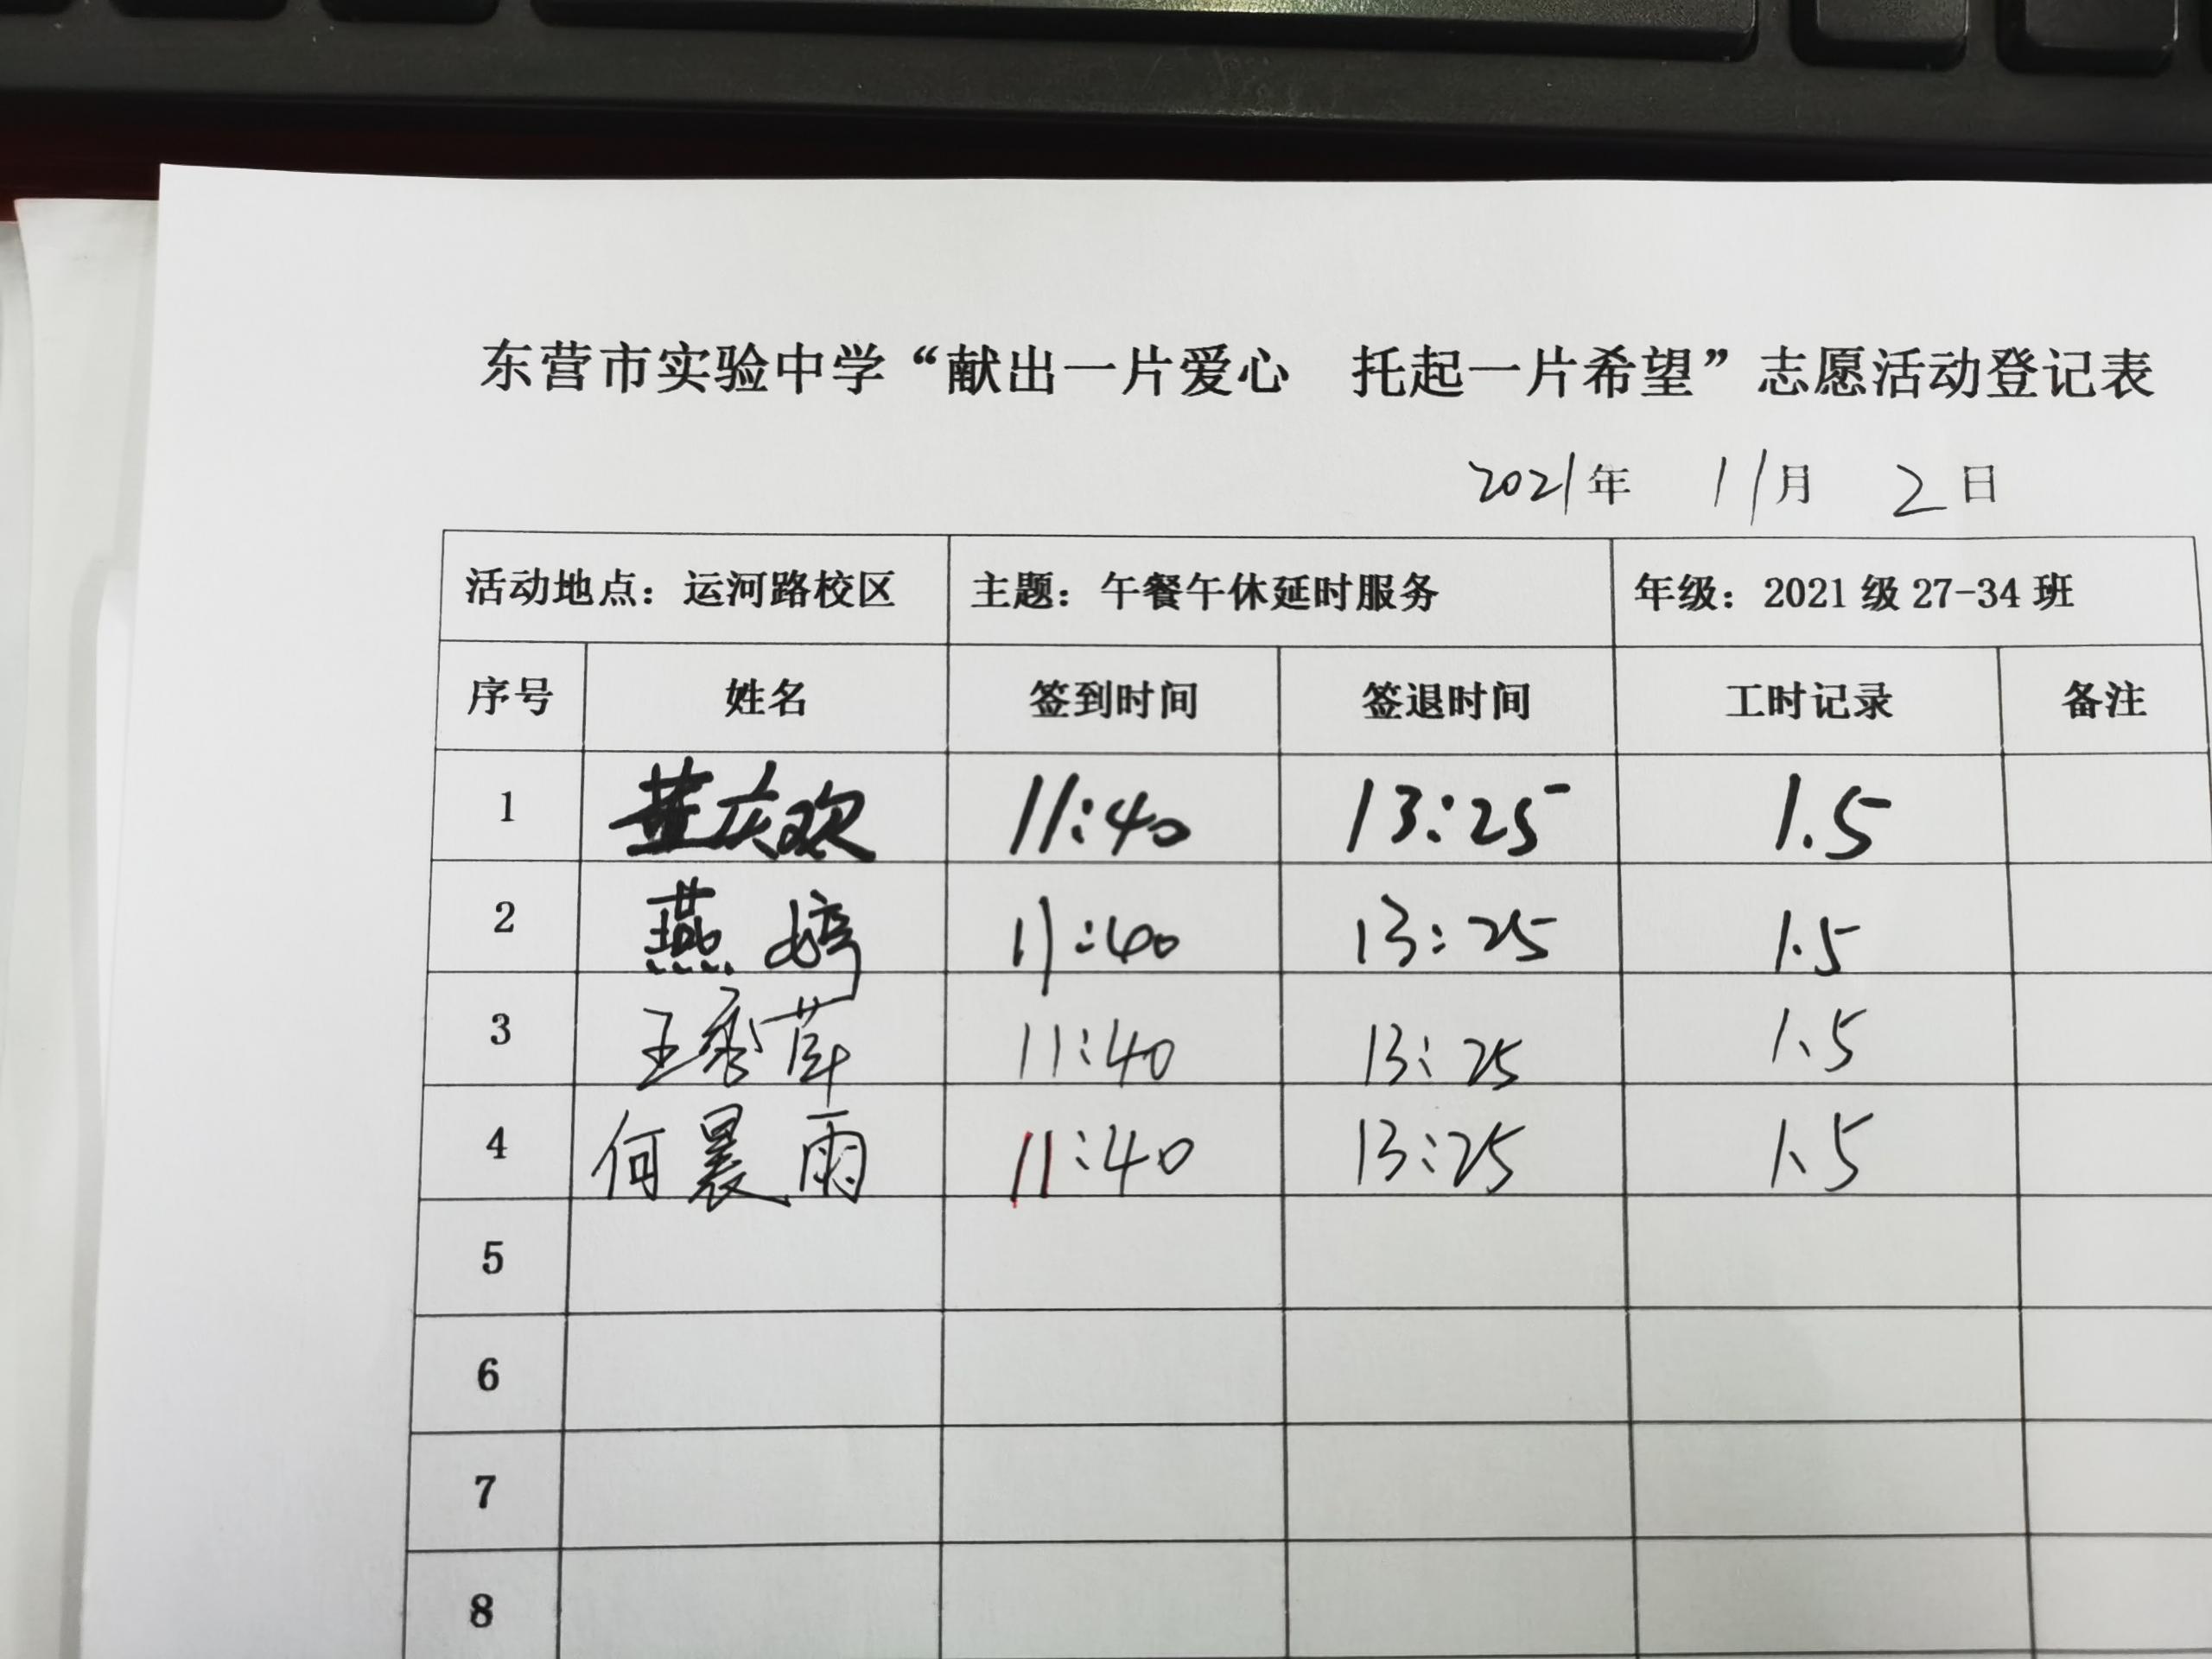 东营市实验中学“献出一片爱心 托起一片希望”志愿活动登记表
2021年 11月 2日
活动地点：运河路校区 主题：午餐午休延时服务 年级：2021级27-34班
序号 姓名 签到时间 签退时间 工时记录 备注
1 董庆欢 11:40 13:25 1.5
2 燕婷 11:40 13:25 1.5
3 王秀萍 11:40 13:25 1.5
4 何晨雨 11:40 13:25 1.5
5
6
7
8